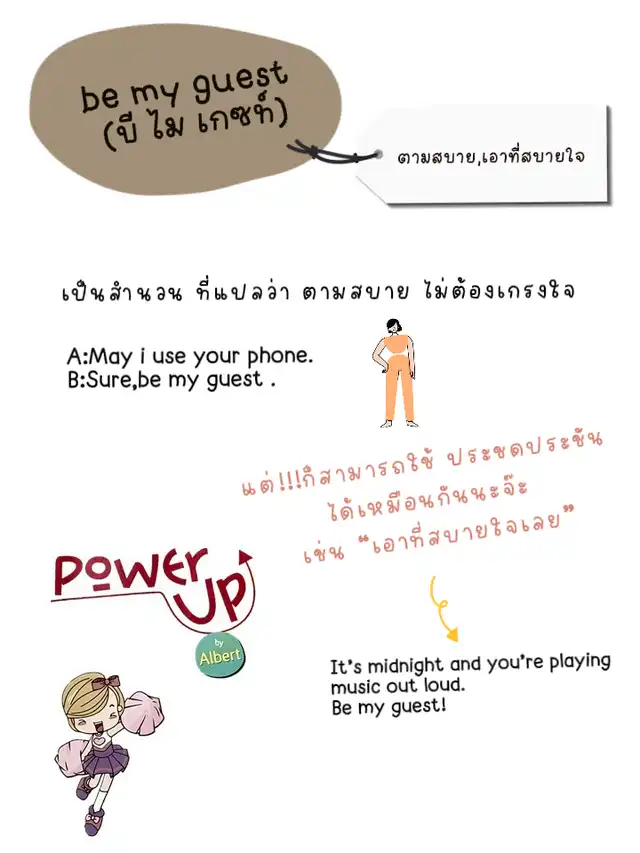 be my guest
(บี ไม เกซท์)
ตามสบาย,เอาที่สบายใจ
เป็นสำนวน ที่แปลว่า ตามสบาย ไม่ต้องเกรงใจ
A:May i use your phone.
B:Sure,be my guest .
แต่!!!ก็สามารถใช้ ประชดประชัน
ได้เหมือนกันนะจ๊ะ
เช่น “เอาที่สบายใจเลย”
POWER
UP
by
Albert
It's midnight and you're playing
music out loud.
Be my guest!